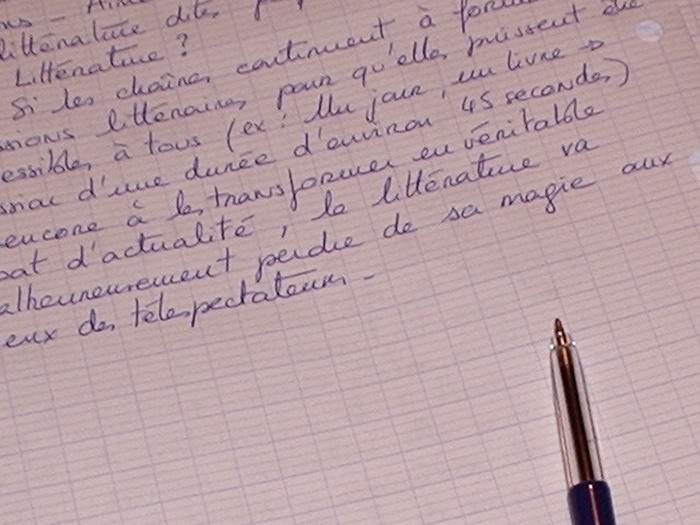 littérature dites
Littérature ?
Si les chaînes continuent à
sions littéraires pour qu'elles puissent être
essibles à tous (ex : Un jour, un livre →
ssion d'une durée d'environ 45 secondes)
encore à les transformer en véritable
bat d'actualité, la littérature va
alheureusement perdre de sa magie aux
eux des téléspectateurs -